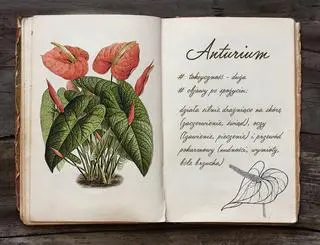 Anturium
# toksyczność - duża
# objawy po spożyciu:
działa silnie drażniąco na skórę
(zaczerwienienie, świąd), oczy
(łzawienie, pieczenie) i przewód
pokarmowy (nudności, wymioty,
bóle brzucha)